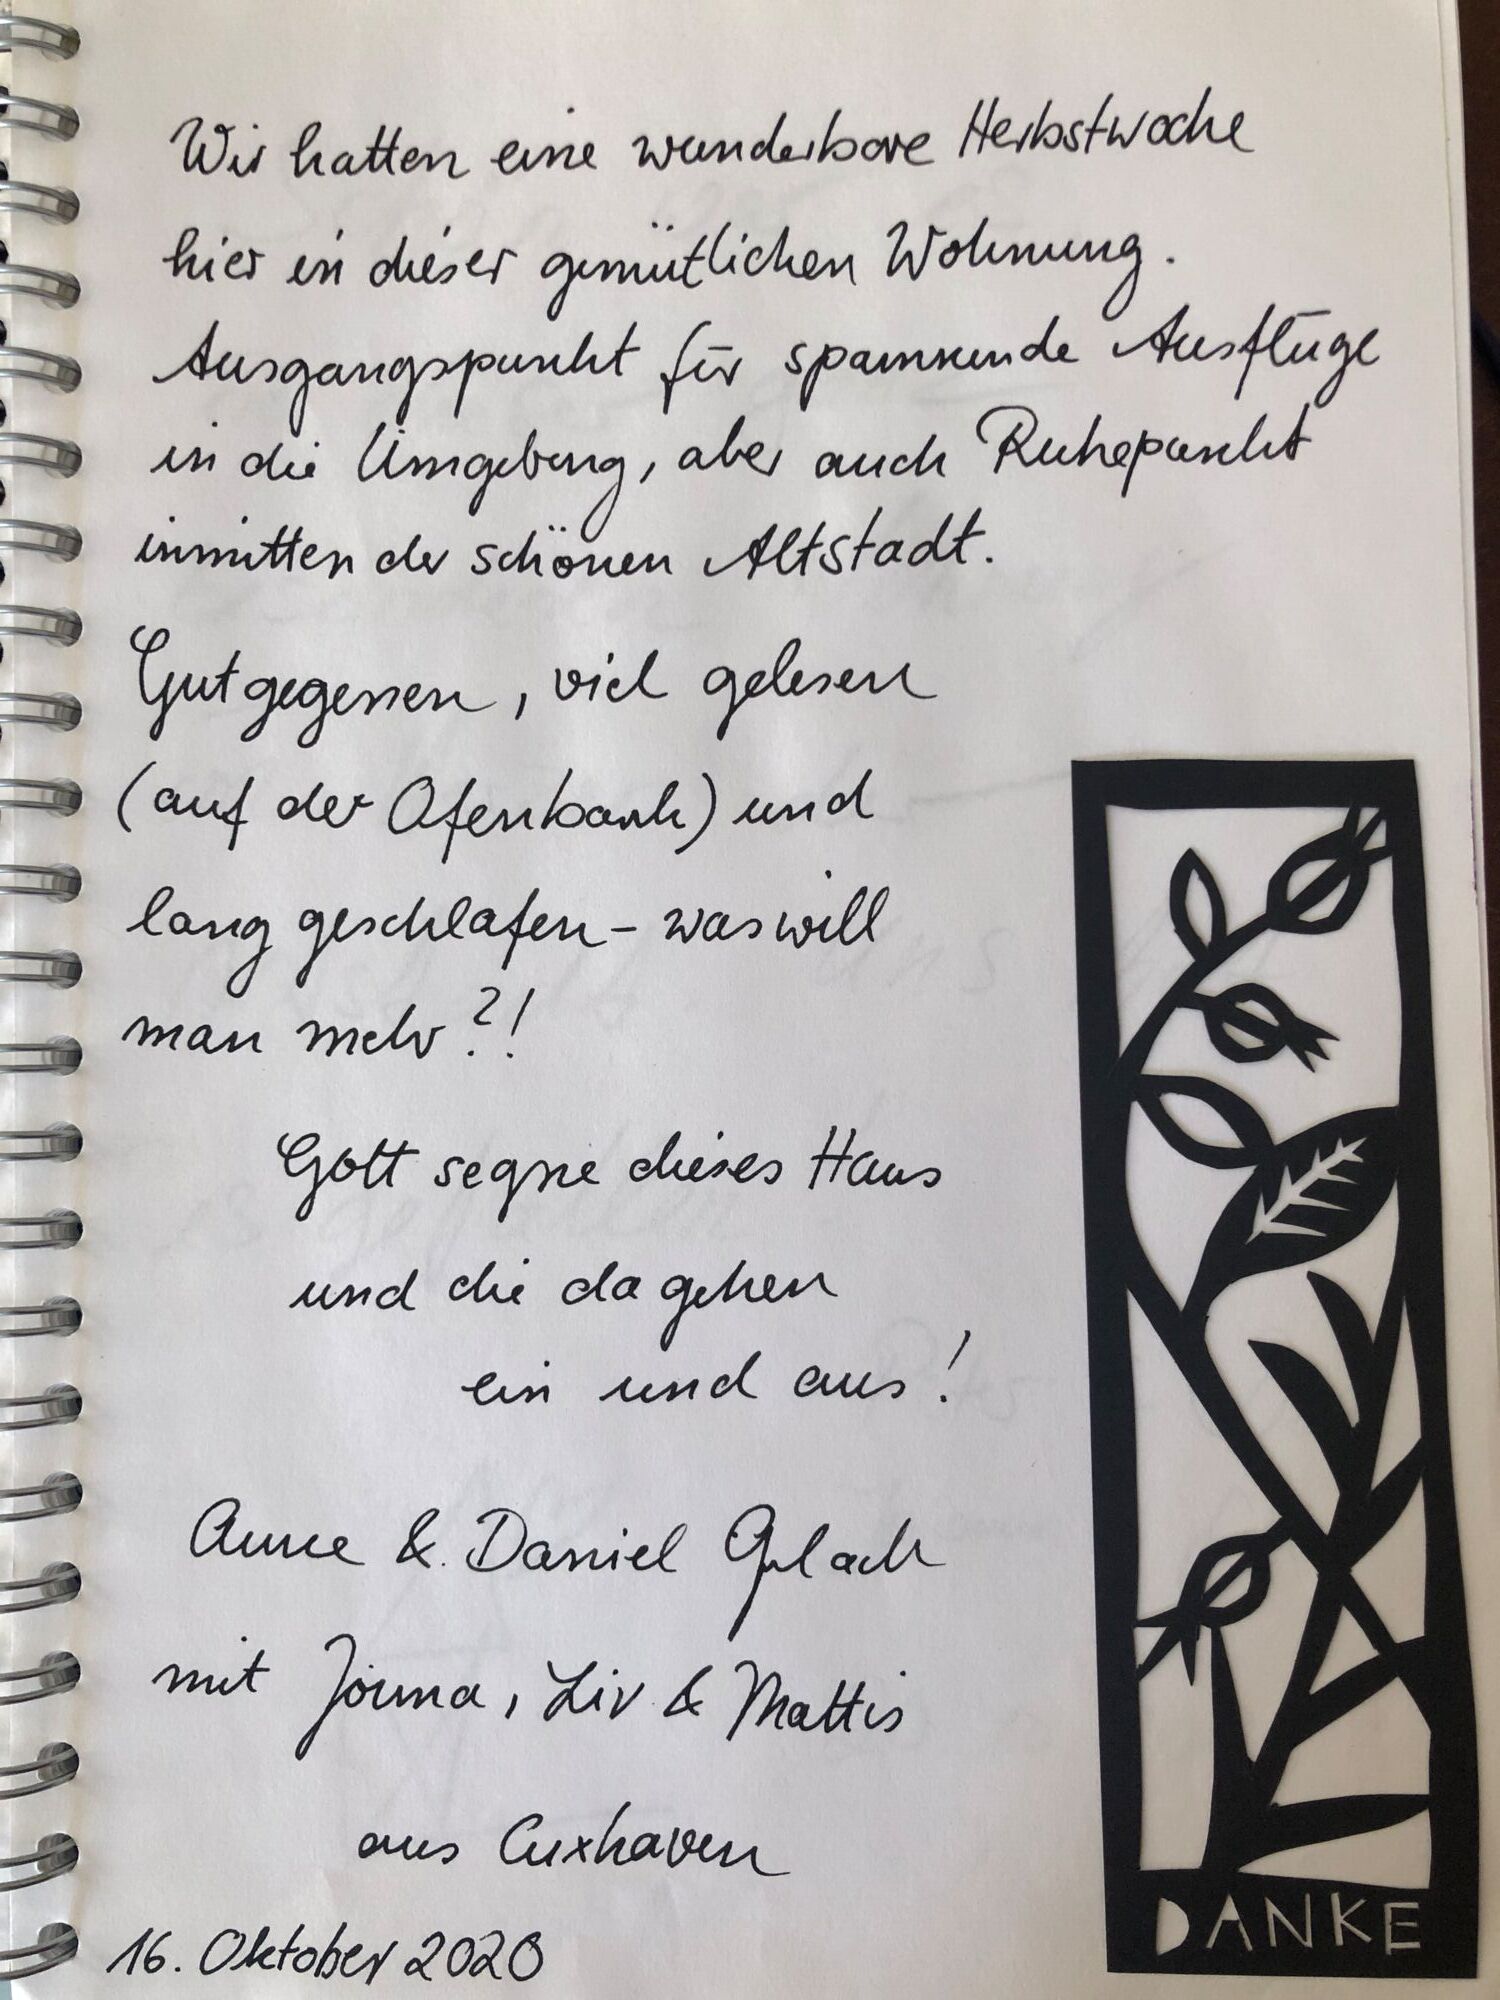 Wir hatten eine wunderbare Herbstwoche
hier in dieser gemütlichen Wohnung.
Ausgangspunkt für spannende Ausflüge
in die Umgebung, aber auch Ruhepunkt
inmitten der schönen Altstadt.
Gut gegessen, viel gelesen
(auf der Ofenbank) und
lang geschlafen - was will
man mehr?!
Gott segne dieses Haus
und die da gehen
ein und aus!
Anne & Daniel
mit Jorma, Liv & Mattis
aus Cuxhaven
16. Oktober 2020
DANKE